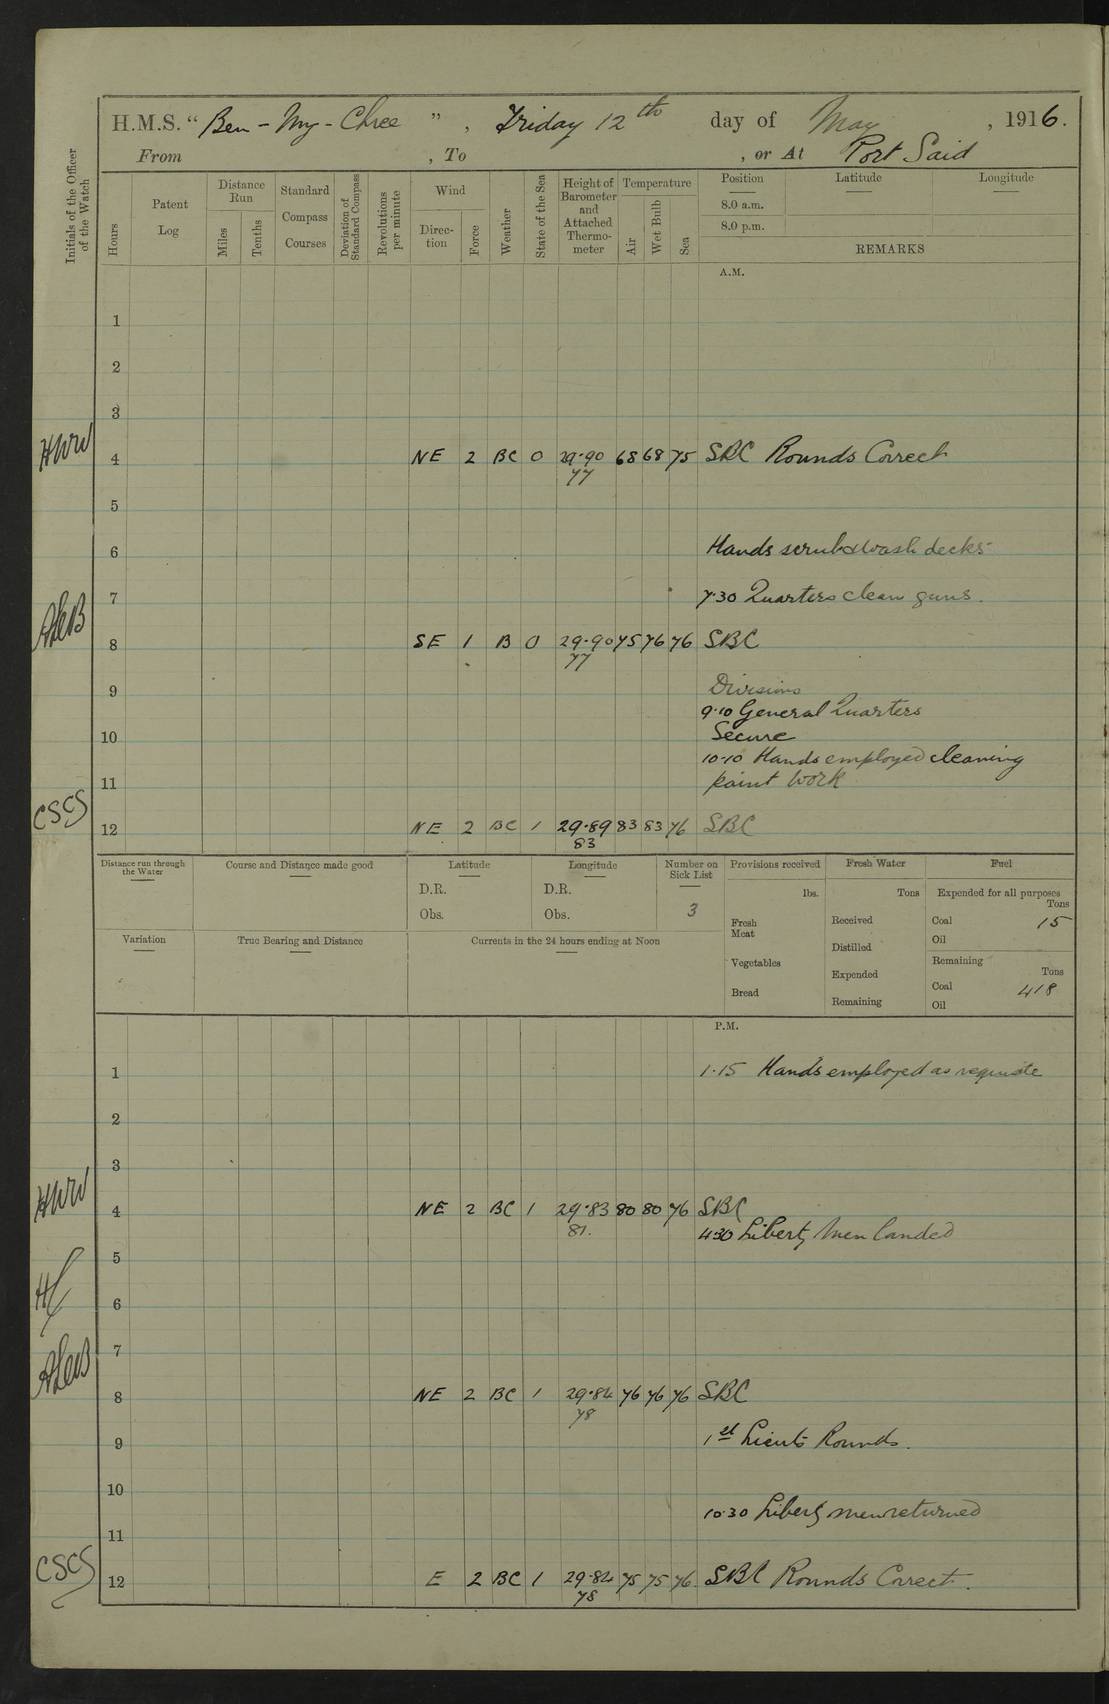 H.M.S. “ Ben-My-Chree ” , Friday 12th day of May , 1916.
From , To , or At Port Said
Initials of the Officer of the Watch
Hours
Patent Log
Distance Run
Miles
Tenths
Standard Compass Courses
Deviation of Standard Compass
Revolutions per minute
Wind
Direc-tion
Force
Weather
State of the Sea
Height of Barometer and Attached Thermo-meter
Temperature
Air
Wet Bulb
Sea
Position Latitude Longitude
8.0 a.m.
8.0 p.m.
REMARKS
A.M.
1
2
3
HWW 4 NE 2 BC 0 29·90 68 68 75 SBC Rounds Correct
77
5
6 Hands scrub & wash decks
7 7·30 Quarters clean guns.
8 SE 1 B 0 29·90 75 76 76 SBC
77
9 Divisions
9·10 General Quarters
10 Secure
10·10 Hands employed cleaning
11 paint work
CSCS 12 NE 2 BC 1 29·89 83 83 76 SBC
83
Distance run through the Water
Course and Distance made good
Latitude
D.R.
Obs.
Longitude
D.R.
Obs.
Number on Sick List
3
Provisions received
lbs.
Fresh Meat
Vegetables
Bread
Fresh Water
Tons
Received
Distilled
Expended
Remaining
Fuel
Expended for all purposes
Tons
Coal 15
Oil
Remaining
Tons
Coal 418
Oil
Variation
True Bearing and Distance
Currents in the 24 hours ending at Noon
P.M.
1 1·15 Hands employed as requisite
2
3
HWW 4 NE 2 BC 1 29·83 80 80 76 SBC
81. 4·30 Liberty men landed
5
6
7
8 NE 2 BC 1 29·84 76 76 76 SBC
78
9 1st Lieuts Rounds.
10
10·30 Liberty men returned
11
CSCS 12 E 2 BC 1 29·84 75 75 76 SBC Rounds Correct.
78